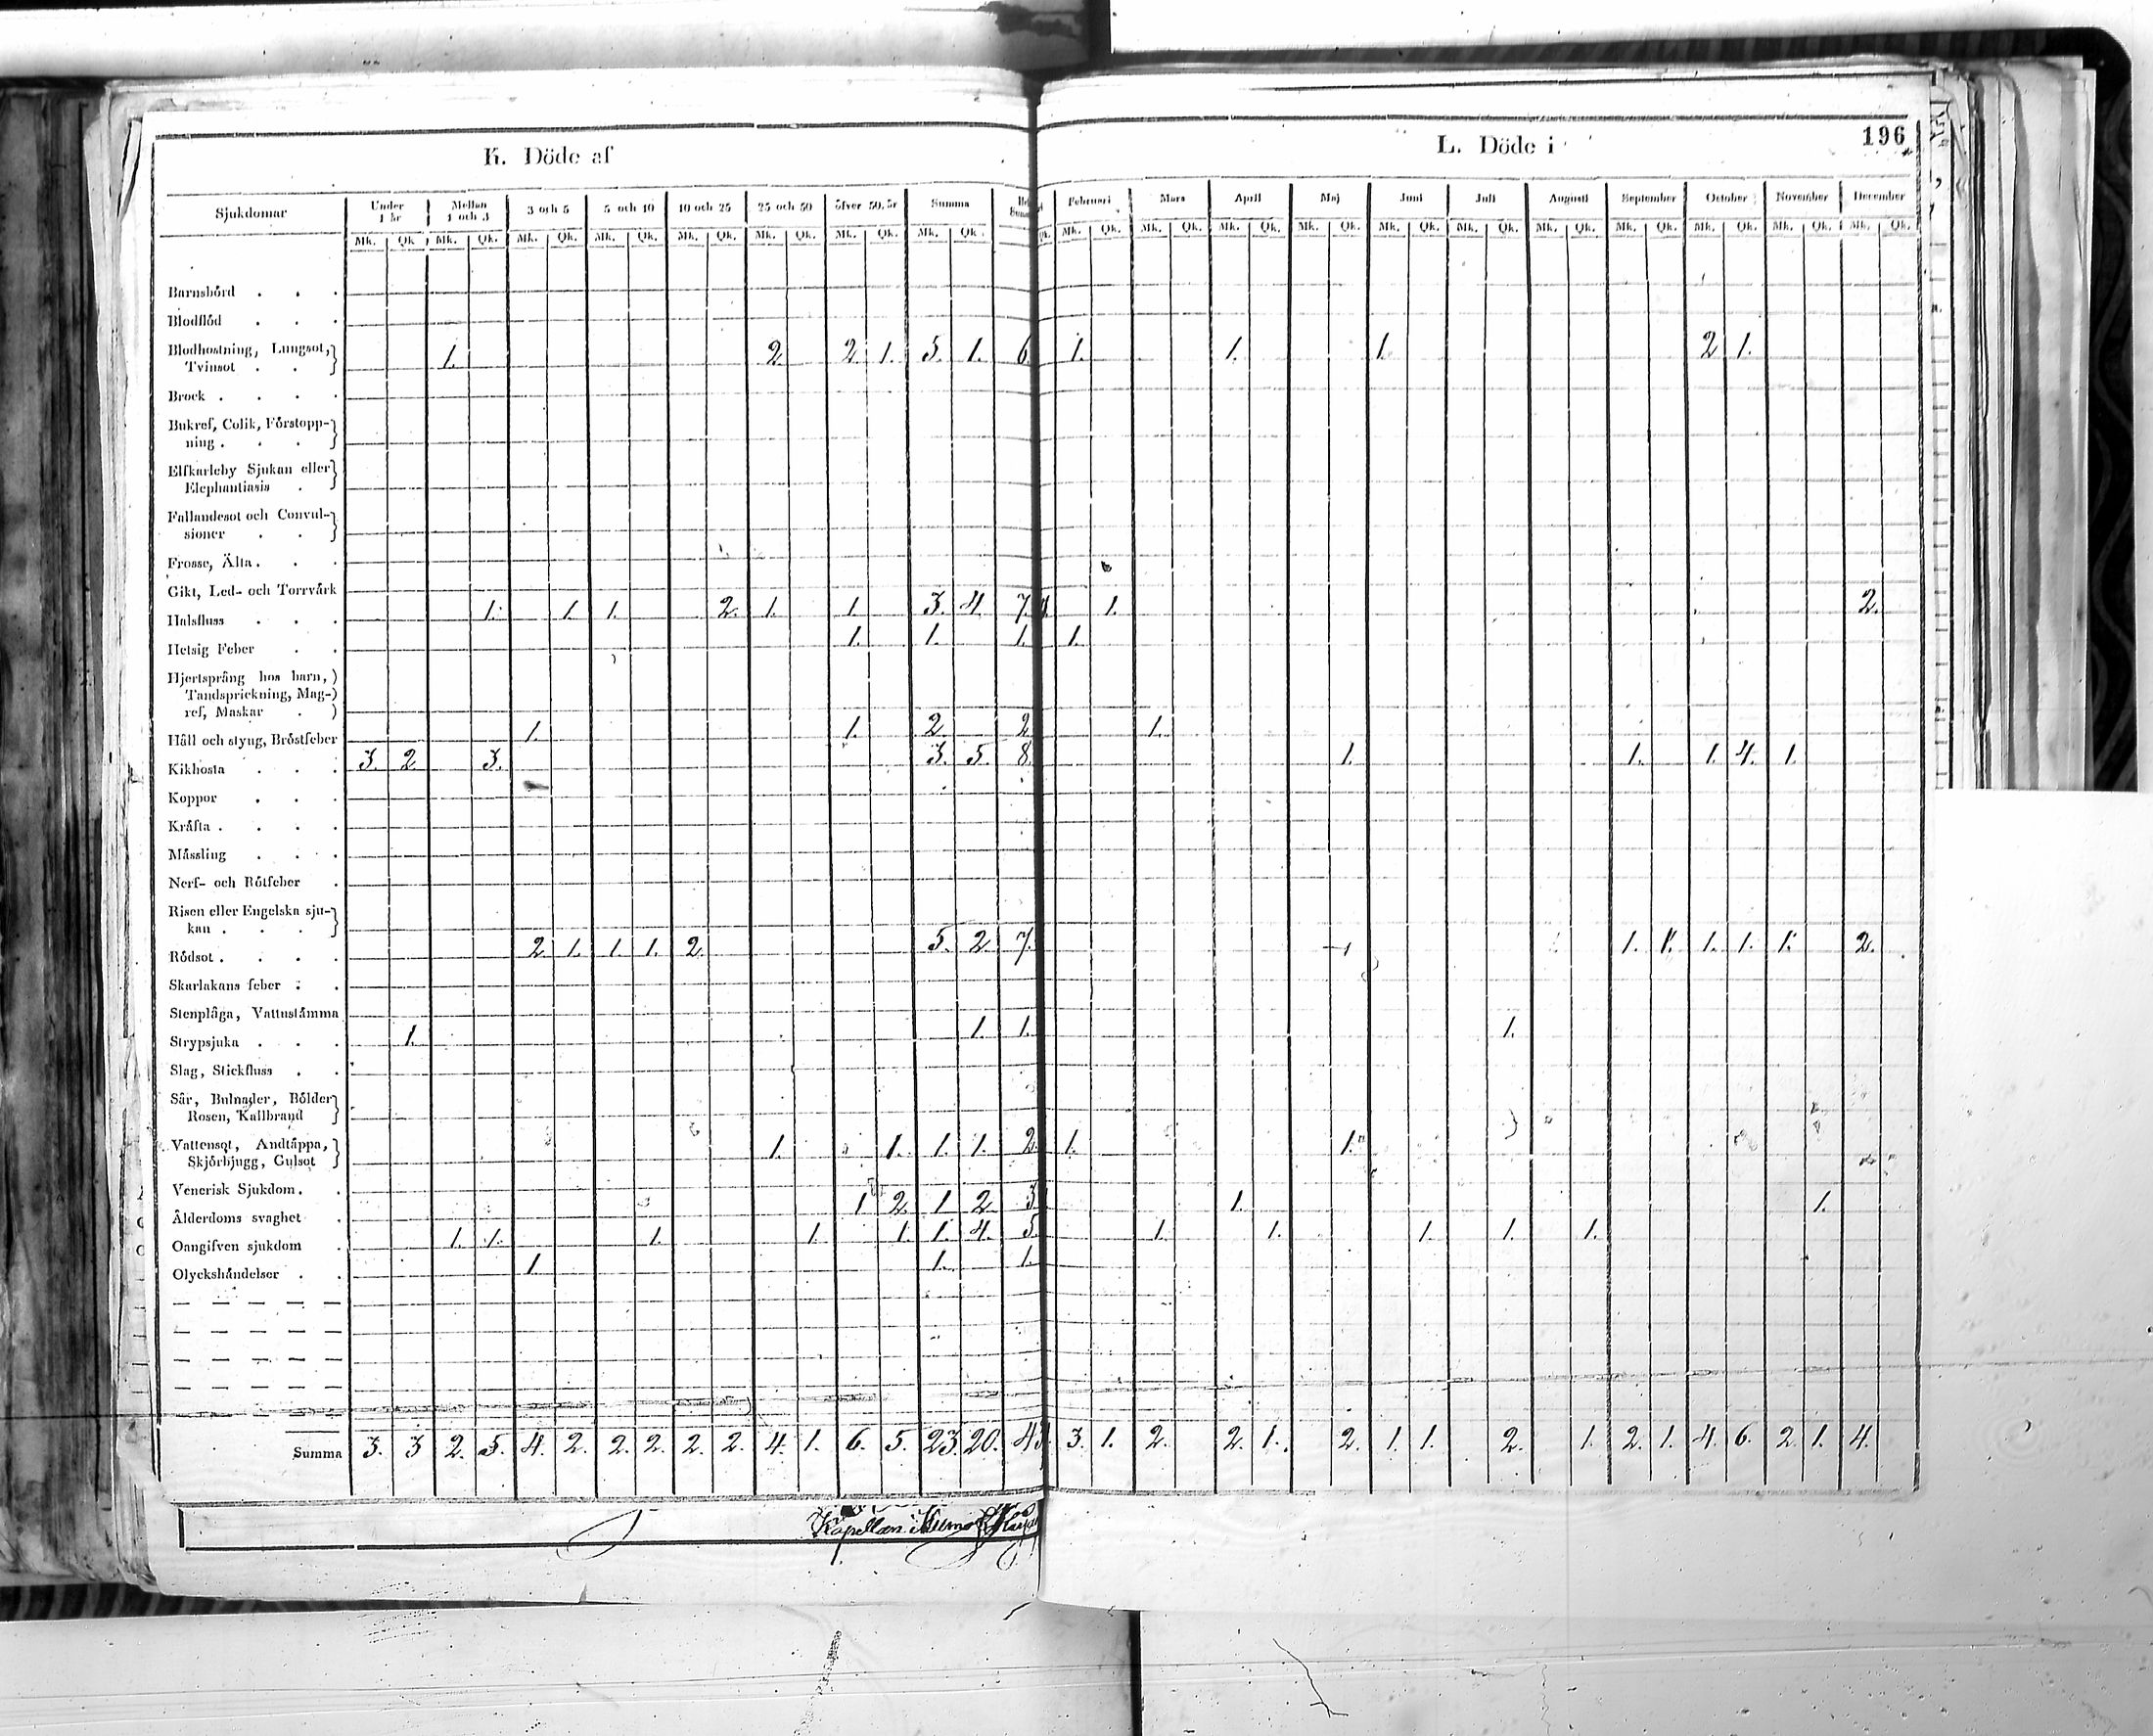 K. Döde af
L. Döde i
196
Sjukdomar Under 1 år Mellan 1 och 3 3 och 5 5 och 10 10 och 25 25 och 50 öfver 50 år Summa Februari Mars April Maj Juni Juli Augusti September October November December
Mk. Qk. Mk. Qk. Mk. Qk. Mk. Qk. Mk. Qk. Mk. Qk. Mk. Qk. Mk. Qk. Qk. Mk. Qk. Mk. Qk. Mk. Qk. Mk. Qk. Mk. Qk. Mk. Qk. Mk. Qk. Mk. Qk. Mk. Qk. Mk. Qk. Mk. Qk.
Barnsbörd . . .
Blodflöd . . .
Blodhostning, Lungsot, Tvinsot . . 1. 2 2 1. 5. 1. 6. 1. 1. 1. 2 1.
Brock . . . .
Bukref, Colik, Förstoppning . . .
Elfkarleby Sjukan eller Elephantiasis .
Fallandesot och Convulsioner . .
Frosse, Älta . . .
Gikt, Led- och Torrvärk
Halsfluss . . . 1. 1. 1. 2. 1. 1. 3. 4. 7. 1. 2.
Hetsig Feber . . 1. 1. 1. 1.
Hjertsprång hos barn, Tandsprickning, Magref, Maskar .
Håll och styng, Bröstfeber 1. 1. 2 2 1.
Kikhosta . . . 3. 2 3. 3. 5. 8. 1. 1. 1. 4. 1.
Koppor . . .
Kräfta . . . .
Mässling . . .
Nerf- och Rötfeber .
Risen eller Engelska sjukan . . .
Rödsot . . . . 2 1. 1. 1. 2. 5. 2 7. 1 1. 1. 1. 1. 1. 2.
Skarlakans feber . .
Stenplåga, Vattustämma
Strypsjuka . . . 1. 1. 1. 1.
Slag, Stickfluss . .
Sår, Bulnader, Bölder Rosen, Kallbrand
Vattensot, Andtäppa, Skjörbjugg, Gulsot 1. 1. 1. 1. 2. 1. 1.
Venerisk Sjukdom . .
Ålderdoms svaghet . 1 2 1 2 3 1. 1.
Oangifven sjukdom . 1. 1. 1. 1. 1. 1. 4. 5. 1. 1. 1. 1. 1.
Olyckshändelser . . 1. 1. 1.
Summa 3. 3 2. 5. 4. 2. 2. 2. 2. 2. 4. 1. 6. 5. 23. 20. 43. 3. 1. 2. 2. 1. 2. 1. 1. 2. 1. 2. 1. 4. 6. 2. 1. 4.
Kapellan i